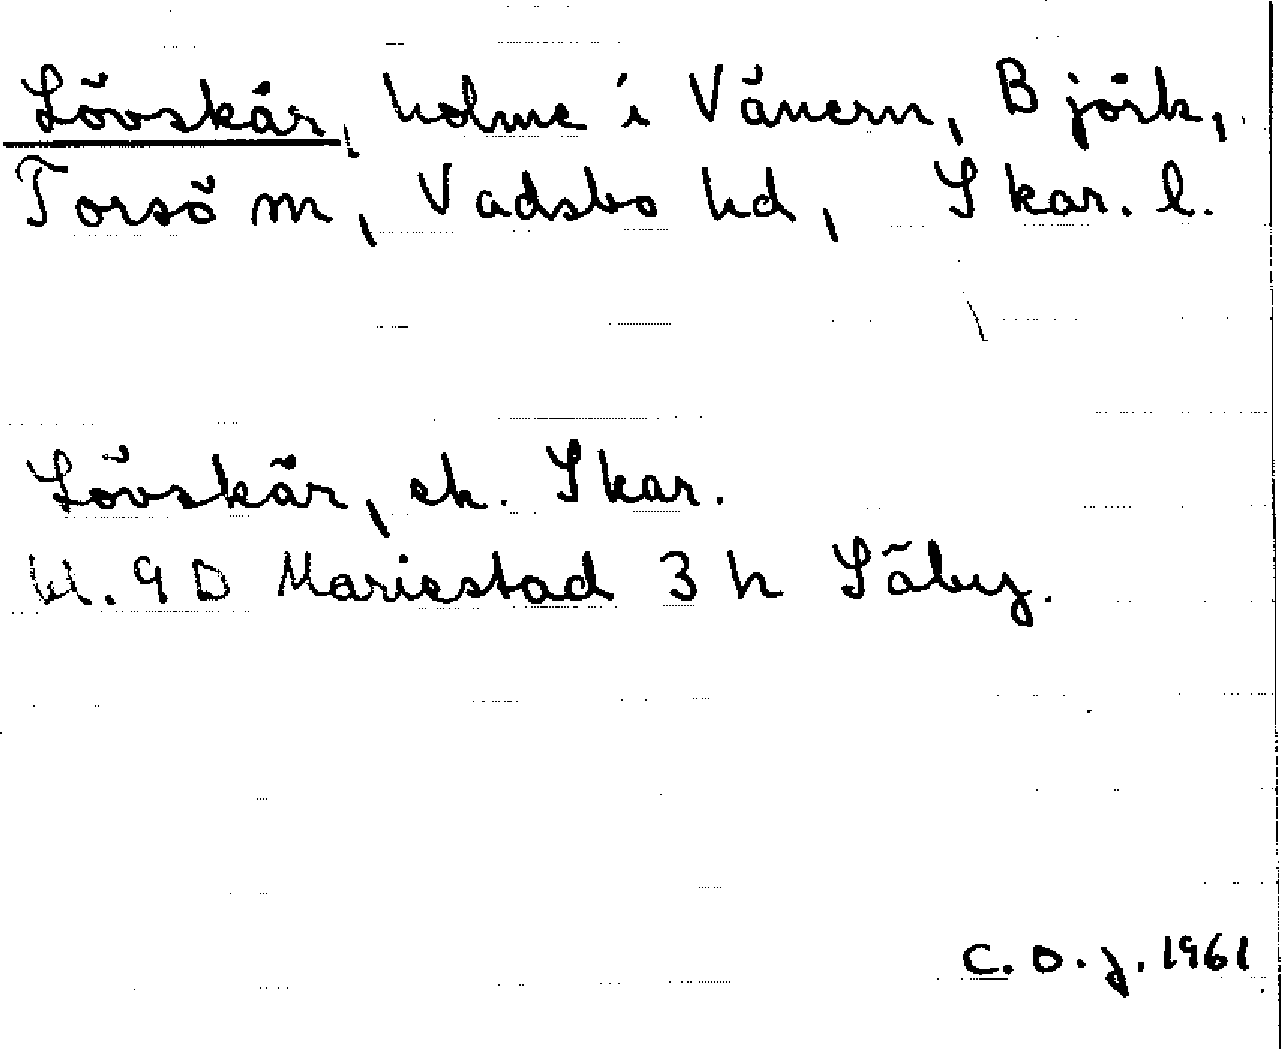 Lövskär, holme i Vänern, Björk,
Torsö m, Vadsbo hd, Skar. l.
Lövskär, ek. Skar.
bl. 9 D Mariestad 3 h Säby.
C. O. J. 1961